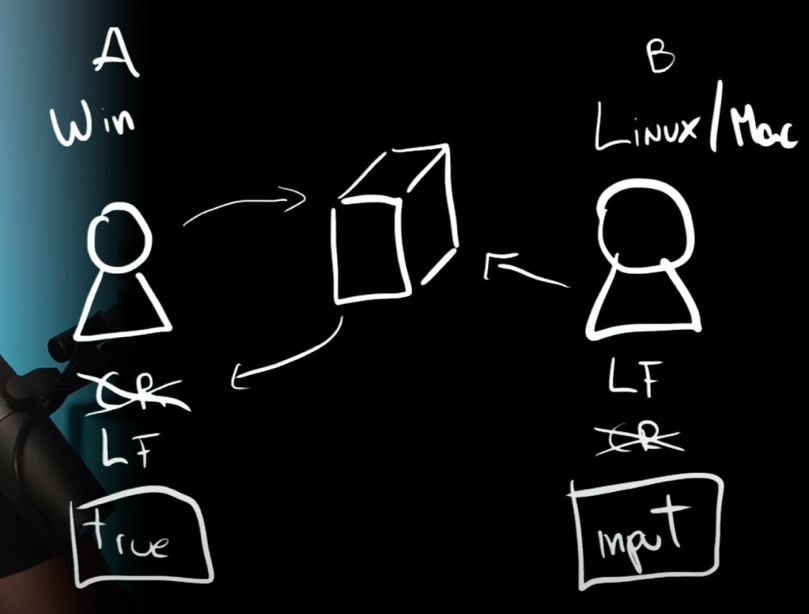 A
Win
CR
LF
true
B
Linux/Mac
LF
CR
input